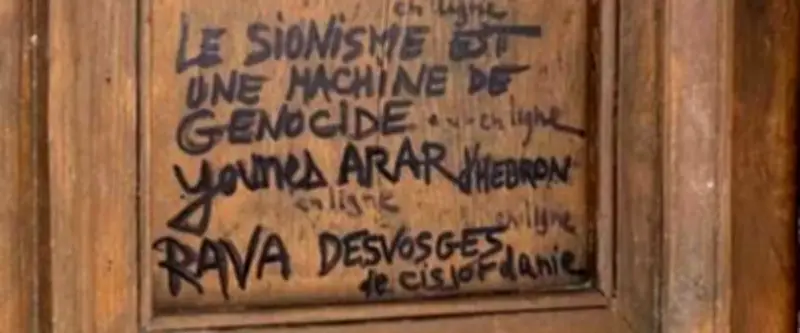 en ligne
LE SIONISME EST
UNE MACHINE DE
GENOCIDE en ligne
younes ARAR d'HEBRON
en ligne
en ligne
RAVA DESVOSGES
de cisjordanie